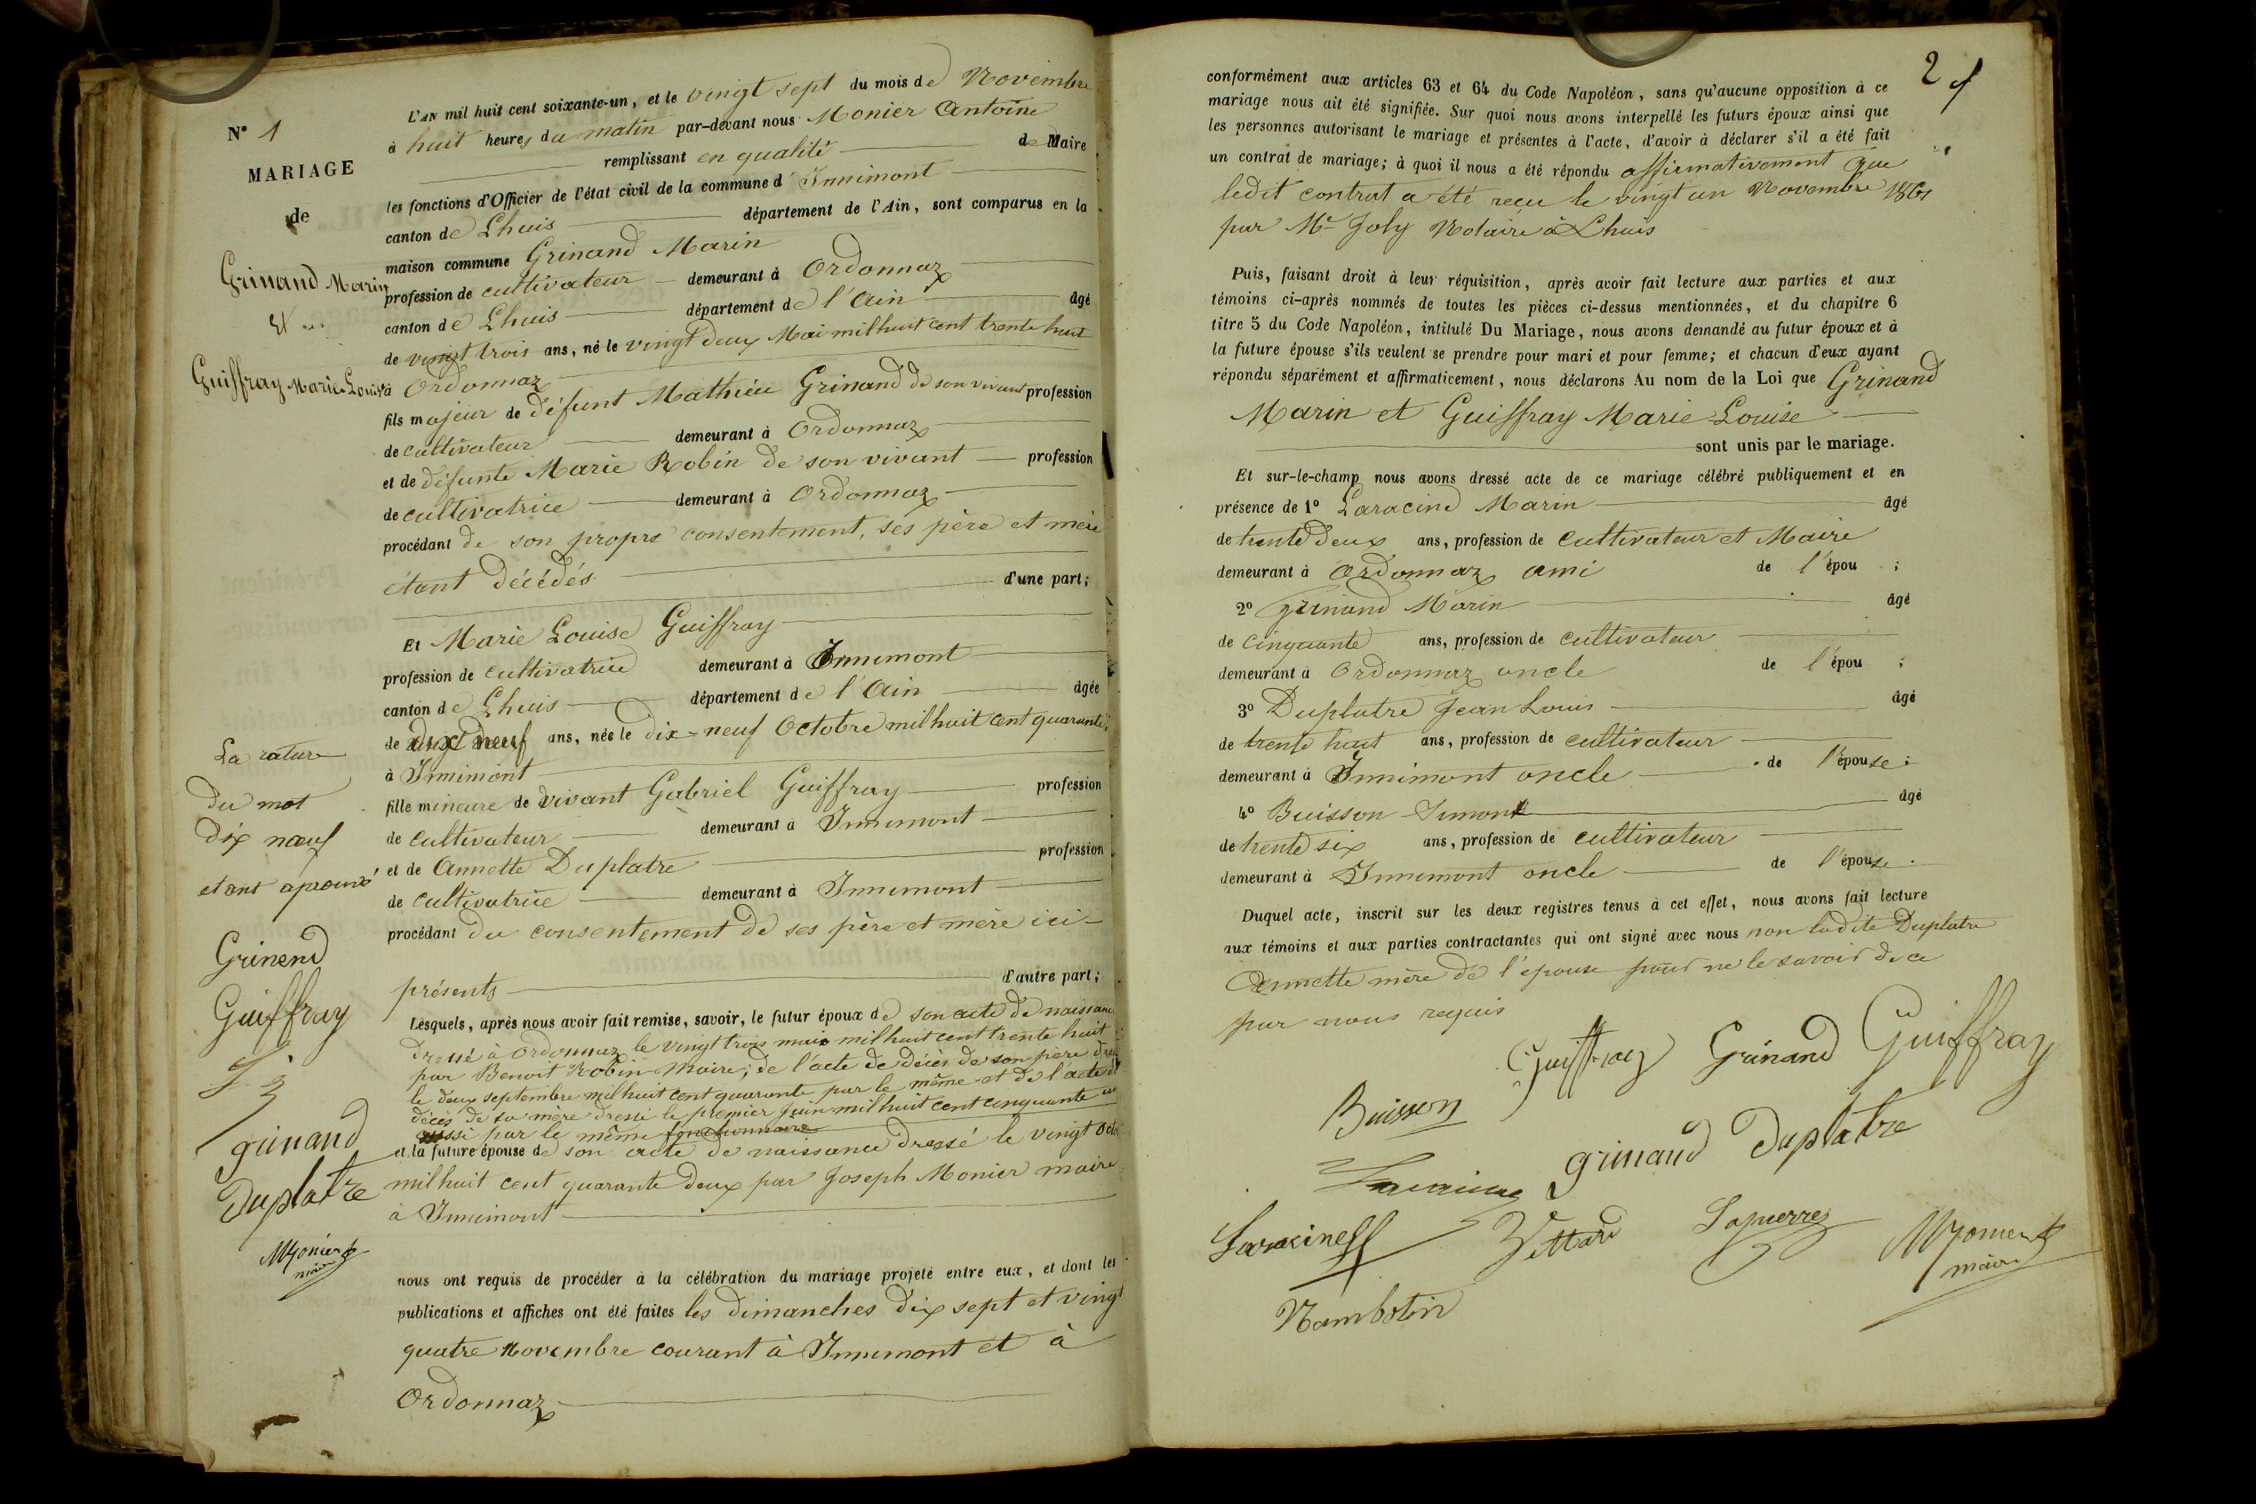 N° 1
MARIAGE
de
Grinand Marin
Et
Guiffray Marie Louise
L'AN mil huit cent soixante-un, et le vingt sept du mois de Novembre
à huit heures du matin par-devant nous Monier Antoine
remplissant en qualité de Maire
les fonctions d'Officier de l'état civil de la commune d'Innimont
canton de Lhuis département de l'Ain, sont comparus en la
maison commune Grinand Marin
profession de cultivateur demeurant à Ordonnaz
canton de Lhuis département de l'Ain âgé
de vingt trois ans, né le vingt deux Mai mil huit cent trente huit
à Ordonnaz
fils majeur de défunt Mathieu Grinand de son vivant profession
de cultivateur demeurant à Ordonnaz
et de défunte Marie Robin de son vivant profession
de cultivatrice demeurant à Ordonnaz
procédant de son propre consentement, ses père et mère
étant décédés d'une part;
Et Marie Louise Guiffray
profession de cultivatrice demeurant à Innimont
canton de Lhuis département de l'Ain âgée
de dix neuf ans, née le dix-neuf Octobre mil huit cent quarante
à Innimont
fille mineure de vivant Gabriel Guiffray profession
de cultivateur demeurant à Innimont
et de Annette Duplatre profession
de cultivatrice demeurant à Innimont
procédant du consentement de ses père et mère ici-
présents d'autre part;
Lesquels, après nous avoir fait remise, savoir, le futur époux de son acte de naissance
dressé à Ordonnaz le vingt trois mai mil huit cent trente huit
par Benoit Robin Maire; de l'acte de décès de son père
le deux septembre mil huit cent quarante par le même et de l'acte de
décès de sa mère dressé le premier Juin mil huit cent cinquante
aussi par le même fonctionnaire
et la future épouse de son acte de naissance dressé le vingt octo
mil huit cent quarante deux par Joseph Monier maire
à Innimont
nous ont requis de procéder à la célébration du mariage projeté entre eux, et dont les
publications et affiches ont été faites les dimanches dix sept et vingt
quatre Novembre courant à Innimont et à
Ordonnaz
La rature
du mot
dix nœuf
etant aprouvé
Grinend
Guiffray
grinand
Duplatre
Monier
maire
2
conformément aux articles 63 et 64 du Code Napoléon, sans qu'aucune opposition à ce
mariage nous ait été signifiée. Sur quoi nous avons interpellé les futurs époux ainsi que
les personnes autorisant le mariage et présentes à l'acte, d'avoir à déclarer s'il a été fait
un contrat de mariage; à quoi il nous a été répondu affirmativement que
ledit contrat a été reçu le vingt un Novembre 1861
par Me Joly Notaire à Lhuis
Puis, faisant droit à leur réquisition, après avoir fait lecture aux parties et aux
témoins ci-après nommés de toutes les pièces ci-dessus mentionnées, et du chapitre 6
titre 5 du Code Napoléon, intitulé Du Mariage, nous avons demandé au futur époux et à
la future épouse s'ils veulent se prendre pour mari et pour femme; et chacun d'eux ayant
répondu séparément et affirmativement, nous déclarons Au nom de la Loi que Grinand
Marin et Guiffray Marie Louise
sont unis par le mariage.
Et sur-le-champ nous avons dressé acte de ce mariage célébré publiquement et en
présence de 1° Laracine Marin âgé
de trente deux ans, profession de cultivateur et Maire
demeurant à Ordonnaz ami de l'épou ;
2° Grinand Marin âgé
de cinquante ans, profession de cultivateur
demeurant à Ordonnaz oncle de l'épou ;
3° Duplatre Jean Louis âgé
de trente huit ans, profession de cultivateur
demeurant à Innimont oncle de l'épouse;
4° Buisson Simon âgé
de trente six ans, profession de cultivateur
demeurant à Innimont oncle de l'épouse.
Duquel acte, inscrit sur les deux registres tenus à cet effet, nous avons fait lecture
aux témoins et aux parties contractantes qui ont signé avec nous non ladite Duplatre
Annette mère de l'épouse pour ne le savoir de ce
par nous requis
Guiffray Grinand Guiffray
Buisson
grinand Duplatre
Laracine
Vettard
Monier
maire
Nambotin